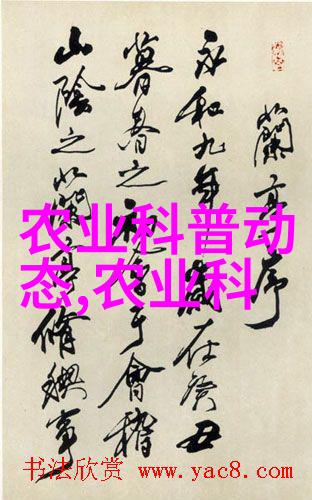 蘭亭序
永和九年歲在癸丑
暮春之初會于會稽
山陰之蘭亭脩禊事
农业科普动
态,农业科
书法欣赏 www.yac8.com